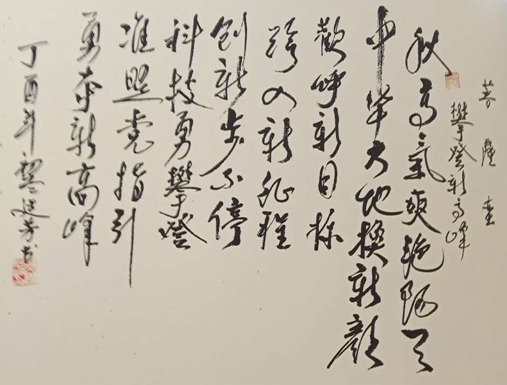 菩薩蛮
攀登新高峰
秋高氣爽艳阳天
中华大地換新顏
歡呼新目标
跨入新征程
创新步不停
科技勇攀登
准照党指引
勇夺新高峰
丁酉年
书